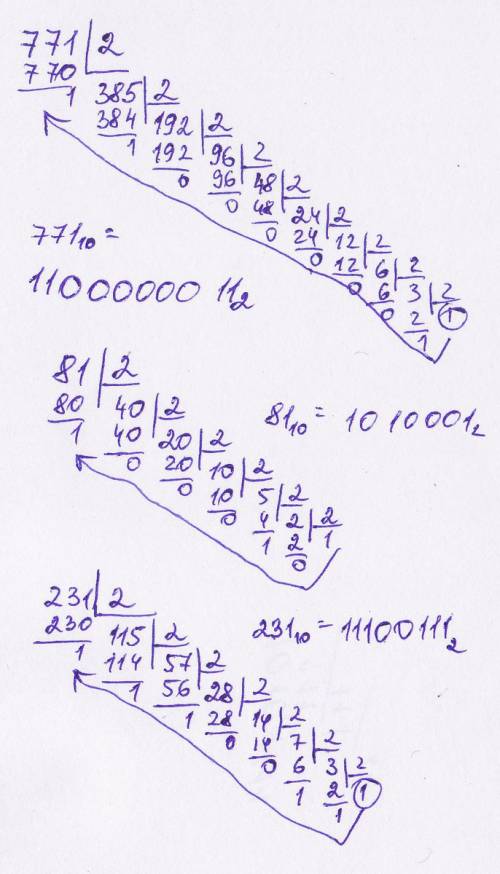 771 | 2
770
1 385 | 2
384 192 | 2
1 192 96 | 2
0 96 48 | 2
0 48 24 | 2
0 24 12 | 2
0 12 6 | 2
0 6 3 | 2
0 2 1
1
771₁₀ =
1100000011₂
81 | 2
80 40 | 2
1 40 20 | 2
0 20 10 | 2
0 10 5 | 2
0 4 2 | 2
1 2 1
0
81₁₀ = 1010001₂
231 | 2
230 115 | 2
1 114 57 | 2
1 56 28 | 2
1 28 14 | 2
0 14 7 | 2
0 6 3 | 2
1 2 1
1
231₁₀ = 11100111₂